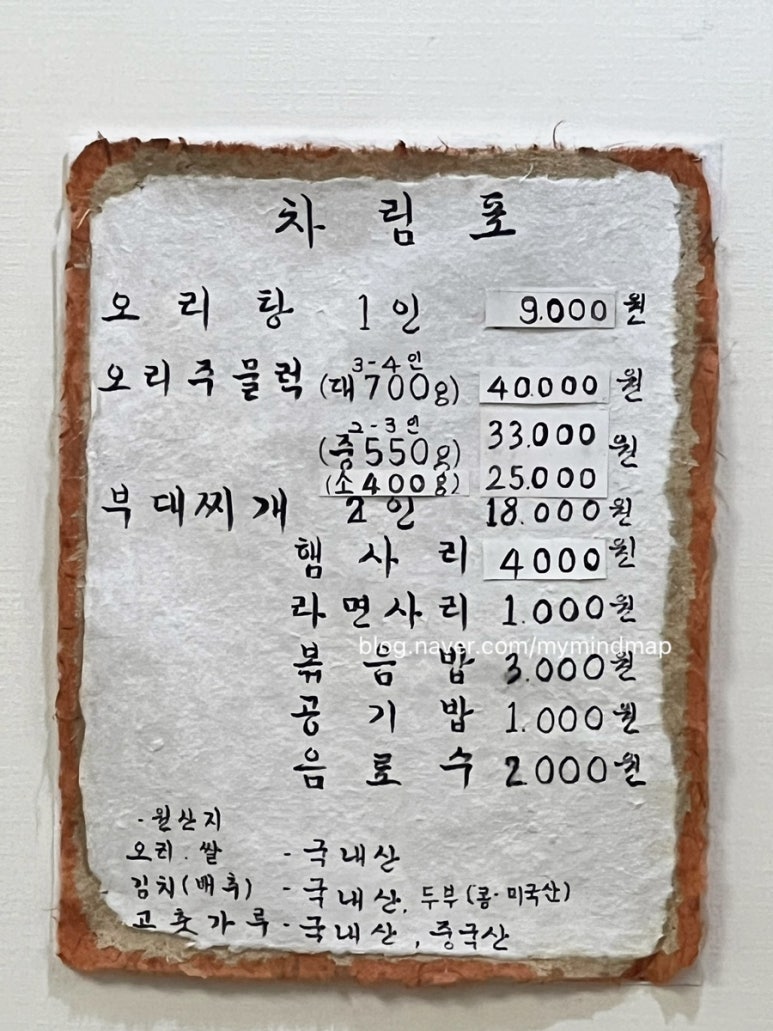 차림표
오리탕 1인 9.000원
3-4인
오리주물럭 (대 700g) 40.000원
2-3인
(중 550g) 33.000원
(소 400g) 25.000
부대찌개 2인 18.000원
햄사리 4000원
라면사리 1.000원
blog.naver.com/mymindmap
볶음밥 3.000원
공기밥 1.000원
음료수 2000원
- 원산지
오리. 쌀 - 국내산
김치(배추) - 국내산, 두부(콩·미국산)
고춧가루 - 국내산, 중국산